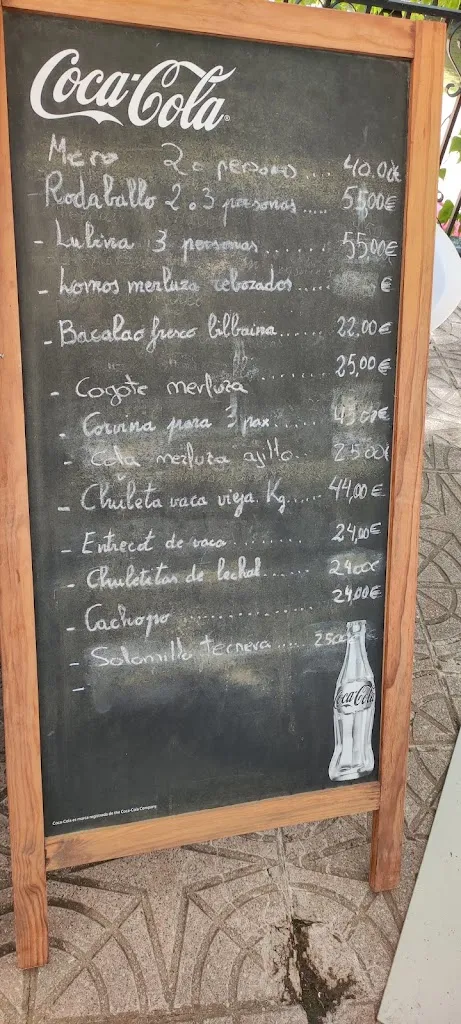 Coca-Cola
Mero 2 personas.... 40.00€
Rodaballo 2 o 3 personas..... 55,00€
- Lubina 3 personas....... 55,00€
- Lomos merluza rebozados..... €
- Bacalao fresco bilbaina...... 22,00€
- Cogote merluza ....... 25,00€
- Corvina para 3 pax....... 45,00€
- Cola merluza ajillo... 25,00€
- Chuleta vaca vieja. Kg..... 44,00€
- Entrecot de vaca......... 24,00€
- Chuletitas de lechal...... 24,00€
- Cachopo ............... 24,00€
- Solomillo ternera.... 25,00€
-
Coca-Cola
Coca-Cola es marca registrada de The Coca-Cola Company.